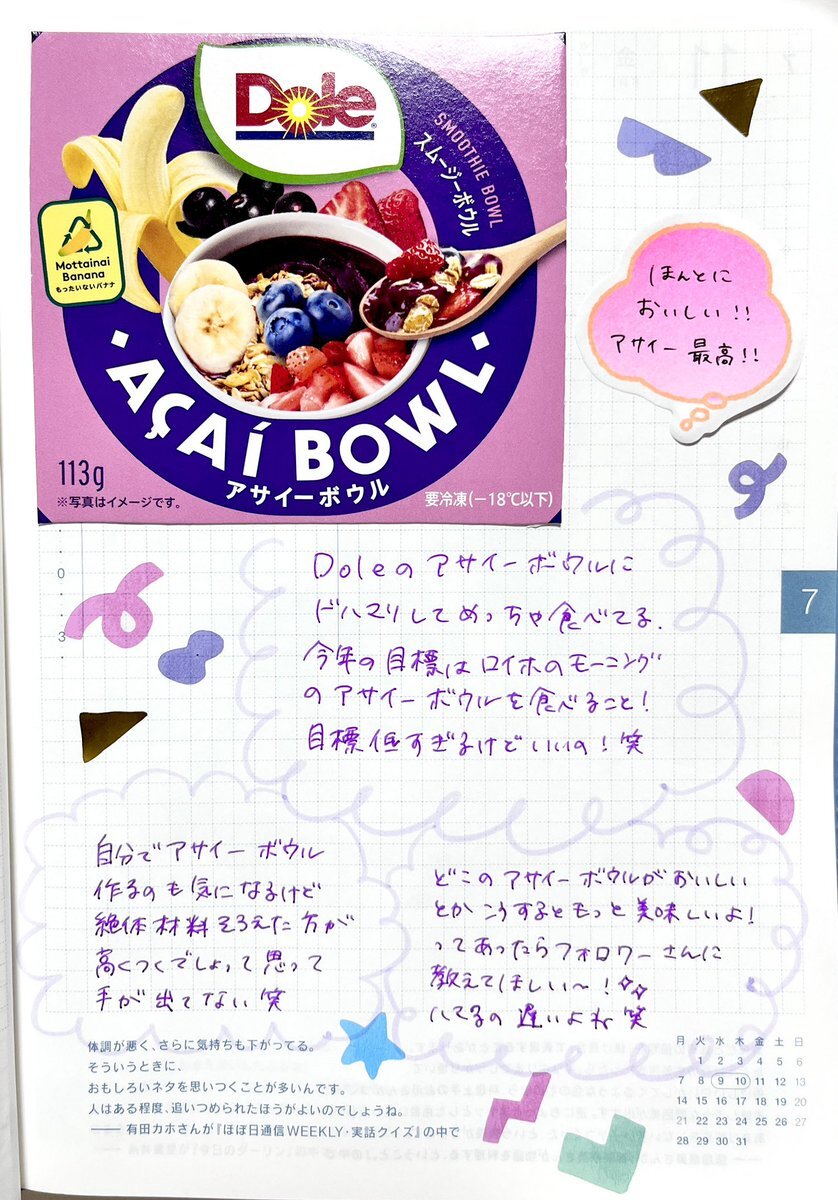 Dole
SMOOTHIE BOWL
スムージーボウル
Mottainai
Banana
もったいないバナナ
・AÇAÍ BOWL・
アサイーボウル
113g
※写真はイメージです。
要冷凍(－18℃以下)
ほんとに
おいしい!!
アサイー 最高!!
0
3
7
Doleのアサイーボウルに
ドハマりしてめっちゃ食べてる.
今年の目標はロイホのモーニング
のアサイーボウルを食べること!
目標低すぎるけどいいの!笑
自分でアサイーボウル
作るのも気になるけど
絶体材料そろえた方が
高くつくでしょって思って
手が出てない笑
どこのアサイーボウルがおいしい
とかこうするともっと美味しいよ!
ってあったらフォロワーさんに
教えてほしい〜!
ハマるの遅いよね笑
体調が悪く、さらに気持ちも下がってる。
そういうときに、
おもしろいネタを思いつくことが多いんです。
人はある程度、追いつめられたほうがよいのでしょうね。
――有田カホさんが『ほぼ日通信WEEKLY・実話クイズ』の中で
月 火 水 木 金 土 日
1 2 3 4 5 6
7 8 9 10 11 12 13
14 15 16 17 18 19 20
21 22 23 24 25 26 27
28 29 30 31